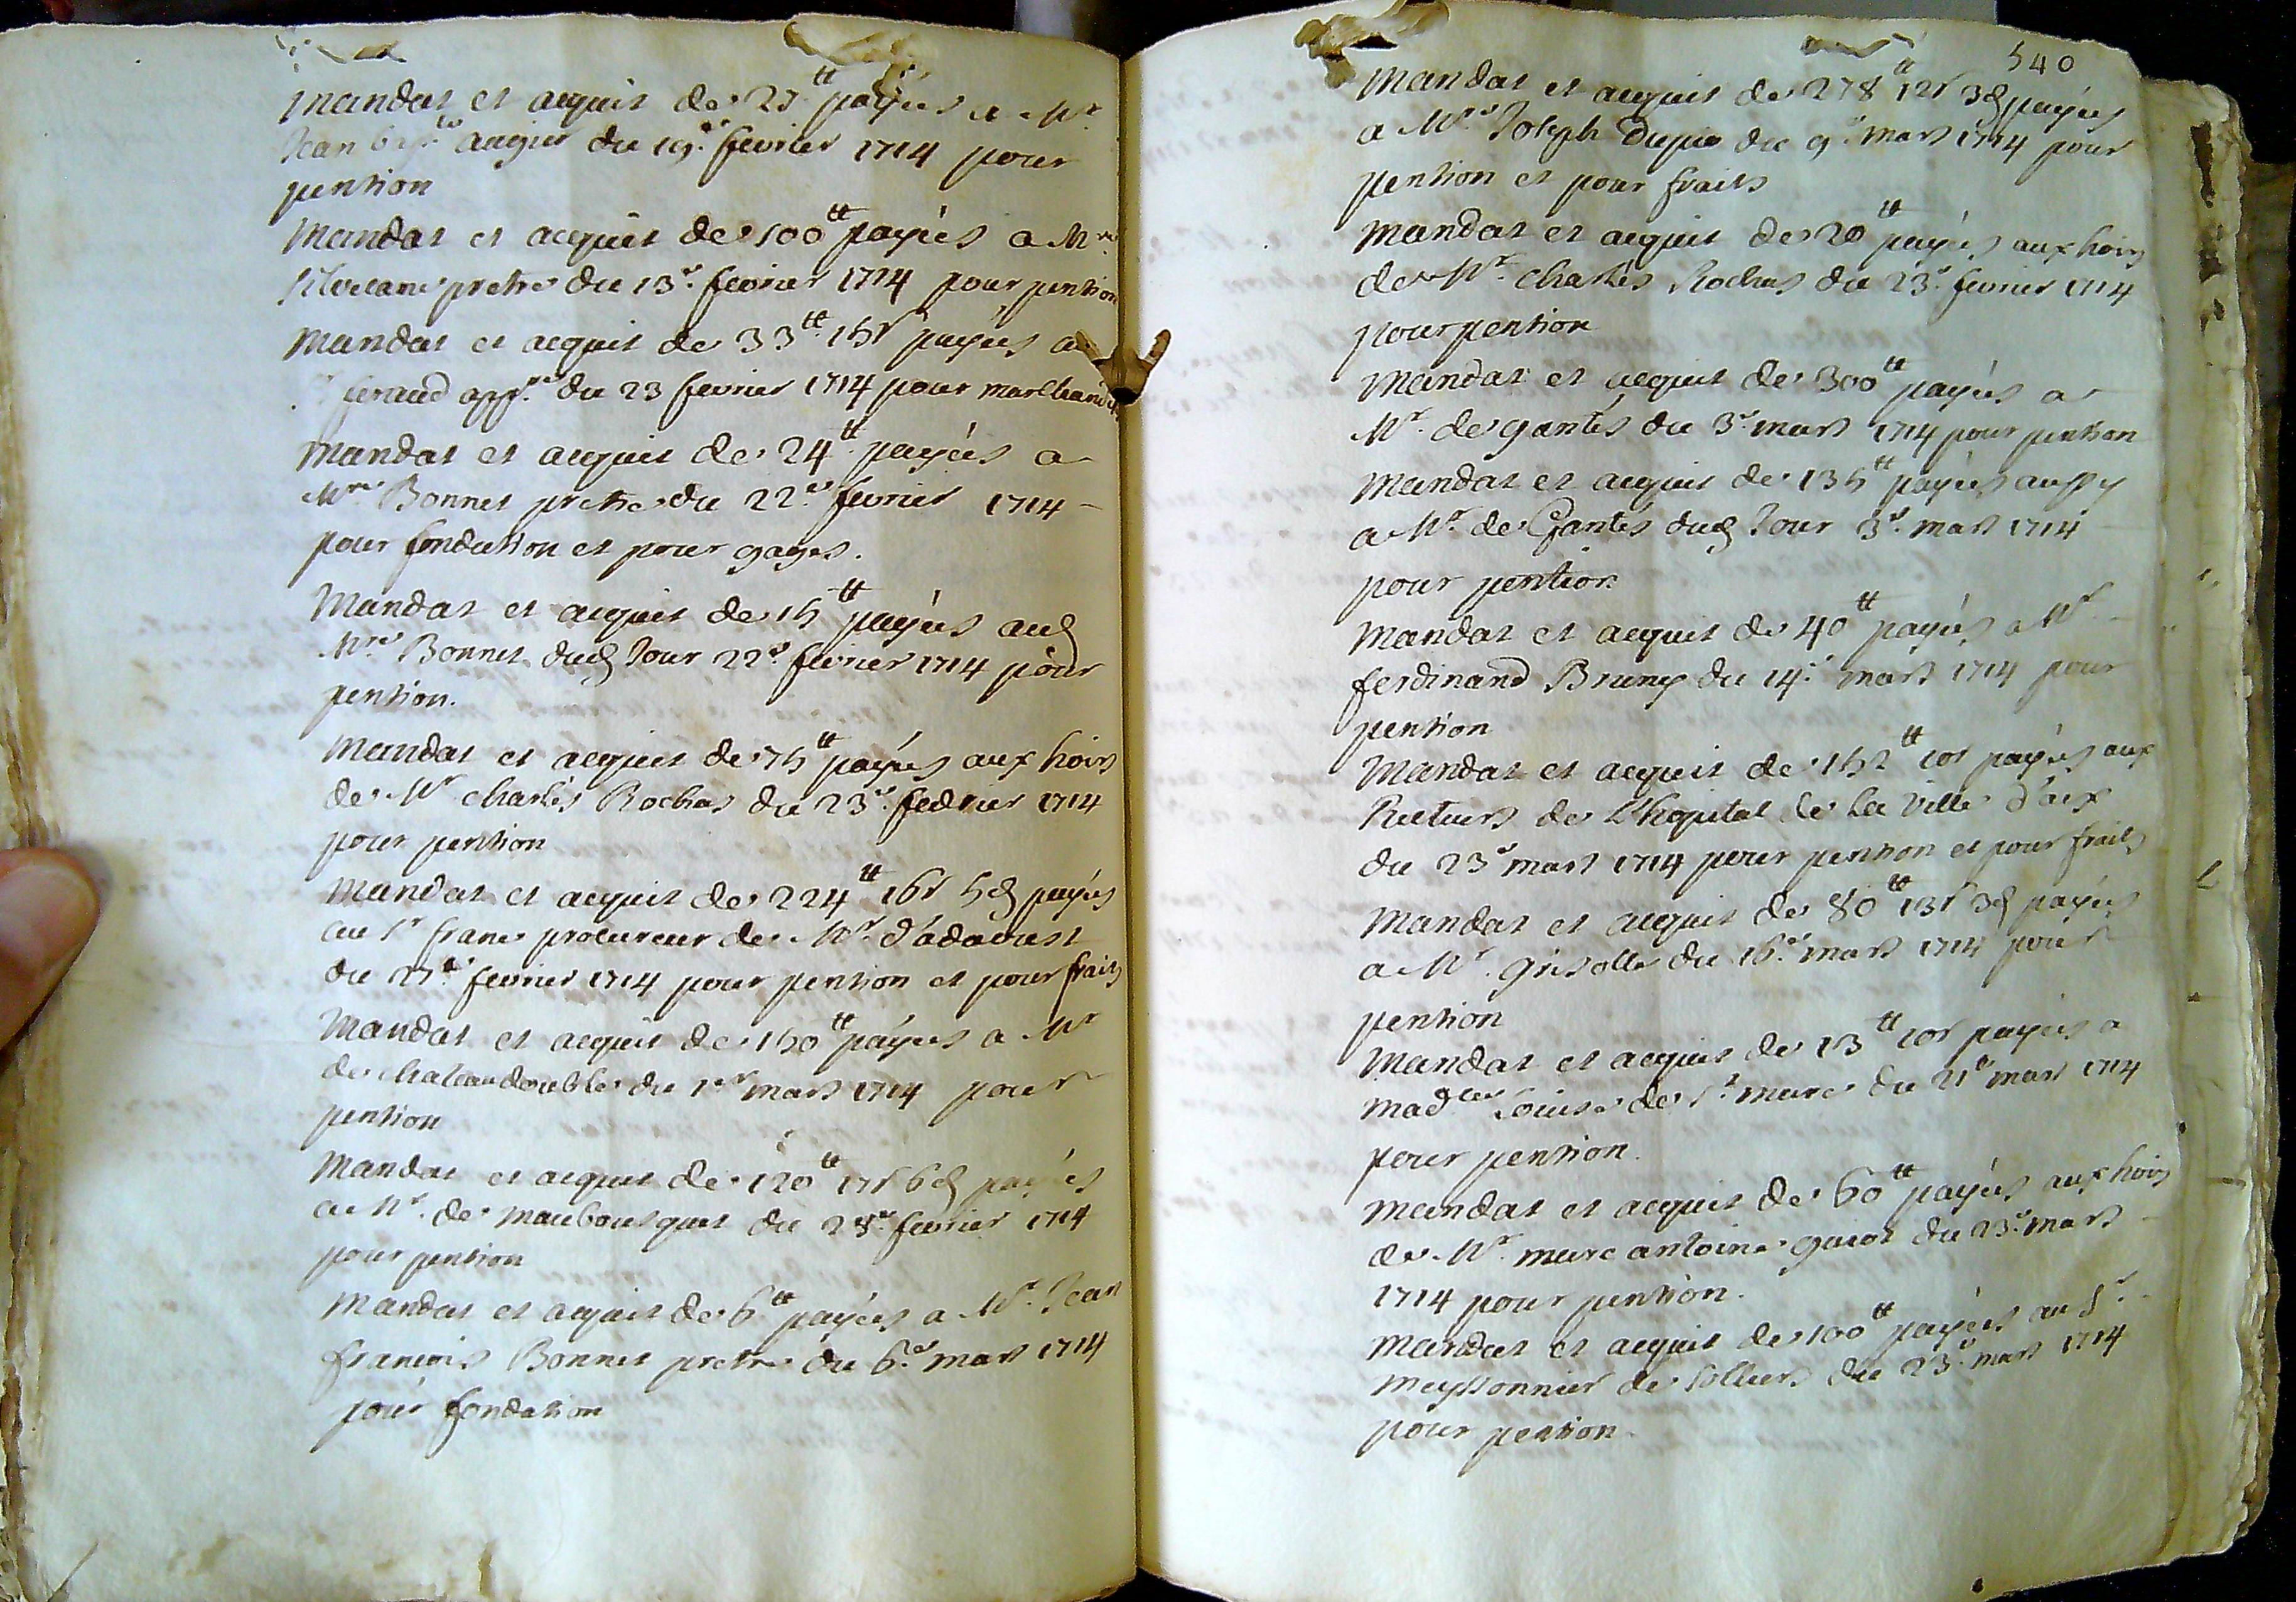 mandat et acquit de 27tt payées a Mr
Jean bapte augier du 19e fevrier 1714 pour
pention
mandat et acquit de 100tt payées a Mre
silvecane pretre du 13e fevrier 1714 pour pention
mandat et acquit de 33tt 15s payées au
Sr feraud appre du 23 fevrier 1714 pour marchandises
mandat et acquit de 24tt payées a
Mre Bonnet pretre du 22e fevrier 1714
pour fondation et pour gages.
mandat et acquit de 15tt payées aud
Mre Bonnet dud Jour 22e fevrier 1714 pour
pention.
mandat et acquit de 75tt payées aux hoirs
de Mr charles Rochas du 23e fevrier 1714
pour pention
mandat et acquit de 224tt 16s 5d payées
au Sr franc procureur de Mr d'adaoust
du 27e fevrier 1714 pour pention et pour fraits
mandat et acquit de 150tt payées a Mr
de chateaudouble du 1er mars 1714 pour
pention
mandat et acquit de 120tt 17s 6d payées
a Mr de maubousquet du 28e fevrier 1714
pour pention
mandat et acquit de 6tt payées a Mr Jean
francois Bonnet pretre du 6e mars 1714
pour fondation
540
mandat et acquit de 278tt 12s 3d payées
a Mre Joseph Dupui du 9e mars 1714 pour
pention et pour fraits
mandat et acquit de 20tt payées aux hoirs
de Mr charles Rochas du 23e fevrier 1714
pour pention
mandat et acquit de 300tt payées a
Mr de gantés du 3e mars 1714 pour pention
mandat et acquit de 135tt payées aussy
a Mr de Gantés dud Jour 3e mars 1714
pour pention
mandat et acquit de 40tt payées a Mr
ferdinand Bruny du 14e mars 1714 pour
pention
mandat et acquit de 152tt 10s payées aux
Recteurs de L'hopital de la ville d'aix
du 23e mars 1714 pour pention et pour fraits
mandat et acquit de 80tt 13s 3d payées
a Mr grisolle du 16e mars 1714 pour
pention
mandat et acquit de 13tt 10s payées a
madlle Louise de St marc du 21e mars 1714
pour pention.
mandat et acquit de 60tt payées aux hoirs
de Mr marc antoine guiot du 23e mars
1714 pour pention.
mandat et acquit de 100tt payées au Sr
meyssonnier de solliers du 23e mars 1714
pour pention.